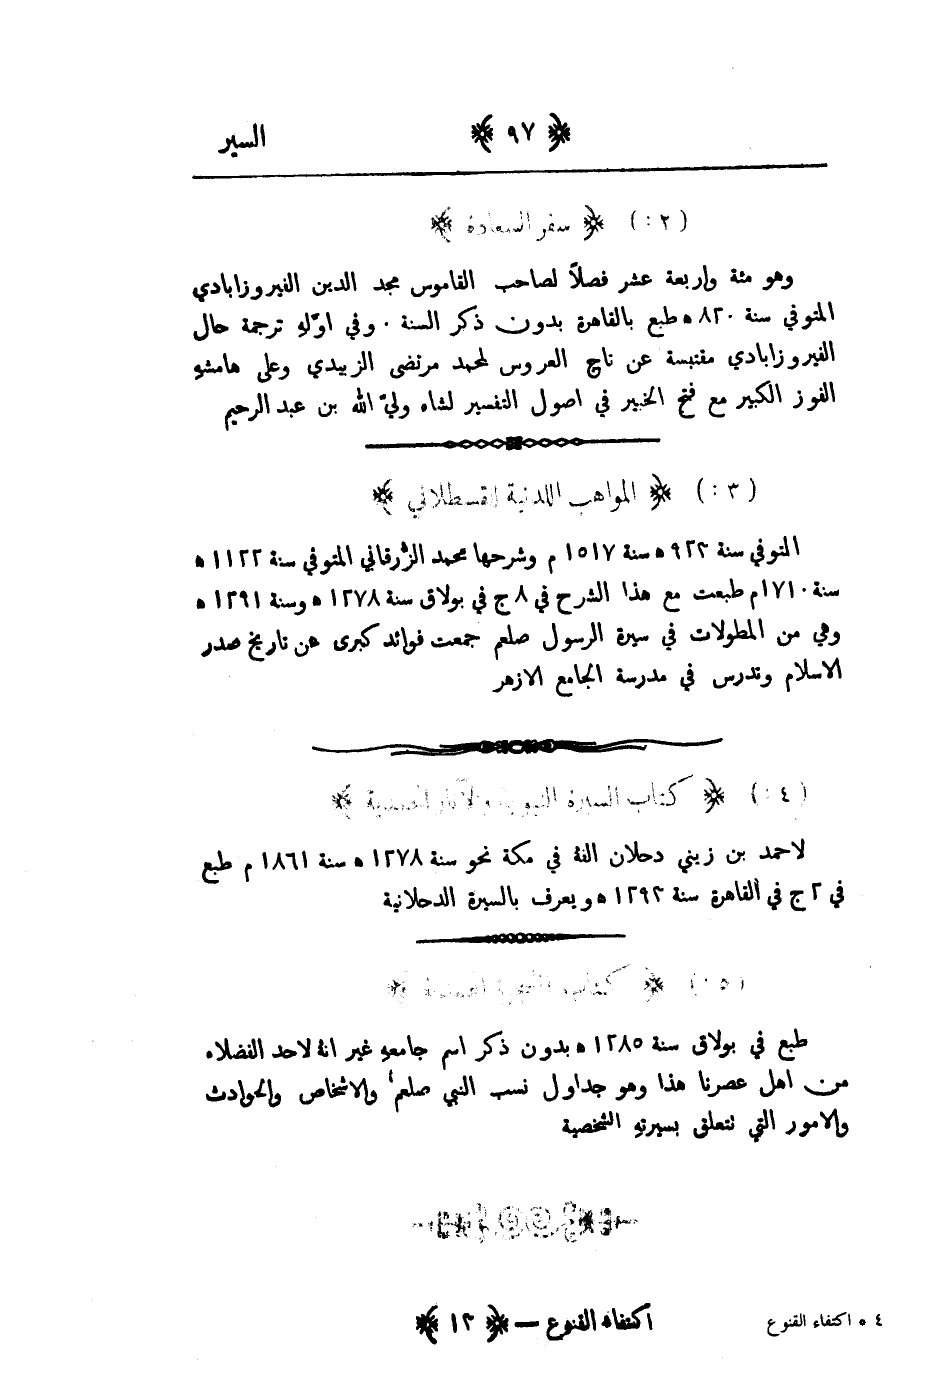 السير ﴿ ٩٧ ﴾
(٢:) ﴿ سفر السعادة ﴾
وهو مئة واربعة عشر فصلاً لصاحب القاموس مجد الدين الفيروزابادي
المتوفي سنة ٨٢٠ ه طبع بالقاهرة بدون ذكر السنة . وفي اوّلهِ ترجمة حال
الفيروزابادي مقتبسة عن تاج العروس لمحمد مرتضى الزبيدي وعلى هامشهِ
الفوز الكبير مع فتح الخبير في اصول التفسير لشاه وليّ الله بن عبد الرحيم
(٣:) ﴿ المواهب اللدنية للقسطلاني ﴾
المتوفي سنة ٩٢٣ ه سنة ١٥١٧ م وشرحها محمد الزُّرقاني المتوفي سنة ١١٢٢ ه
سنة ١٧١٠ م طبعت مع هذا الشرح في ٨ ج في بولاق سنة ١٢٧٨ ه وسنة ١٢٩١ ه
وهي من المطولات في سيرة الرسول صلعم جمعت فوائد كبرى عن تاريخ صدر
الاسلام وتدرس في مدرسة الجامع الازهر
(٤:) ﴿ كتاب السيرة النبوية والآثار المحمدية ﴾
لاحمد بن زيني دحلان الفهُ في مكة نحو سنة ١٢٧٨ ه سنة ١٨٦١ م طبع
في ٢ ج في القاهرة سنة ١٢٩٣ ه ويعرف بالسيرة الدحلانية
(٥:) ﴿ كتاب المحمدية ﴾
طبع في بولاق سنة ١٢٨٥ ه بدون ذكر اسم جامعهِ غير انهُ لاحد الفضلاء
من اهل عصرنا هذا وهو جداول نسب النبي صلعم والاشخاص والحوادث
والامور التي نتعلق بسيرتهِ الشخصية
اكتفاء القنوع — ﴿ ١٣ ﴾
٤ * اكتفاء القنوع